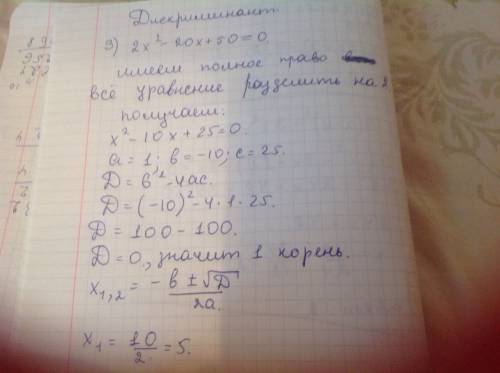 Дискриминант
3) 2x² - 20x + 50 = 0.
имеем полное право
всё уравнение разделить на 2
получаем:
x² - 10x + 25 = 0.
a = 1; b = -10; c = 25.
D = b² - 4ac.
D = (-10)² - 4 · 1 · 25.
D = 100 - 100.
D = 0, значит 1 корень.
x₁,₂ = (-b ± √D) / 2a.
x₁ = 10/2 = 5.